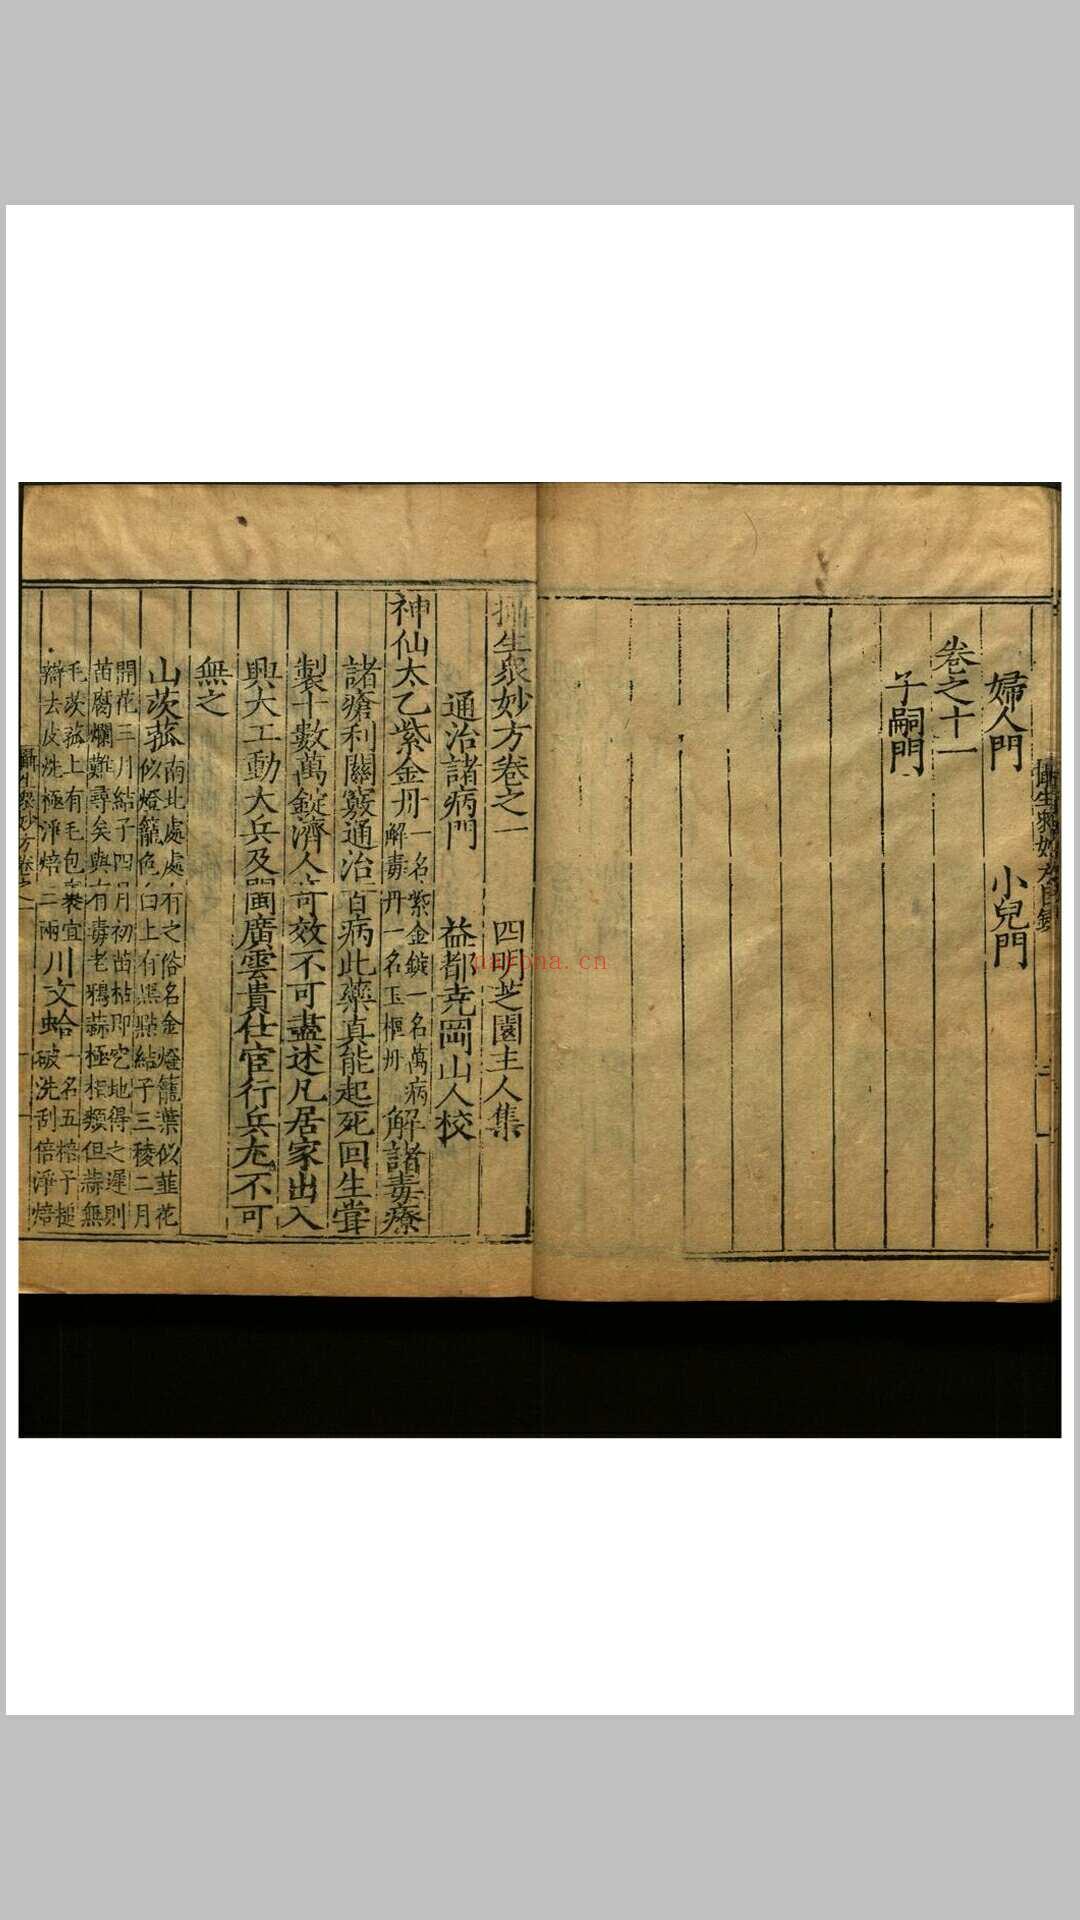 婦人門　小兒門
卷之十一
子嗣門
攝生衆妙方卷之一　四明芝園主人集
通治諸病門　益都堯岡山人校
神仙太乙紫金丹一名紫金錠一名萬病解毒丹一名玉樞丹解諸毒療
諸瘡利關竅通治百病此藥真能起死回生嘗
製十數萬錠濟人奇效不可盡述凡居家出入
興大工動大兵及閩廣雲貴仕宦行兵尤不可
無之
山茨菰南北處處有之俗名金燈籠葉似韮花似燈籠色白上有黑點結子三稜二月
開花三月結子四月初苗枯即空地得之遲則苗腐爛難尋矣與有毒老鴉蒜極相類但蒜無
毛茨菰上有毛包裹宜辯去皮洗極淨焙二兩川文蛤一名五棓子搥破洗刮倍淨焙
narona.cn